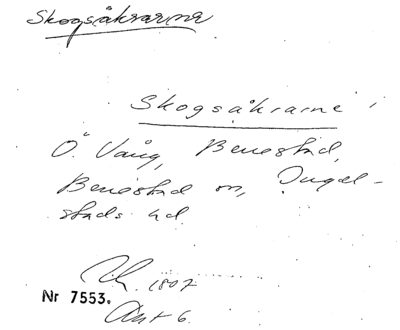 Skogsåkrarna
Skogsåkrarne
Ö. Vång, Benestad,
Benestad sn, Ingel-
stads hd
1807
Nr 7553.
Akt 6.